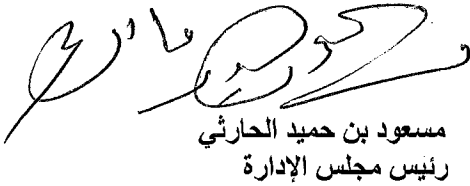 مسعود بن حميد الحارثي
رئيس مجلس الإدارة